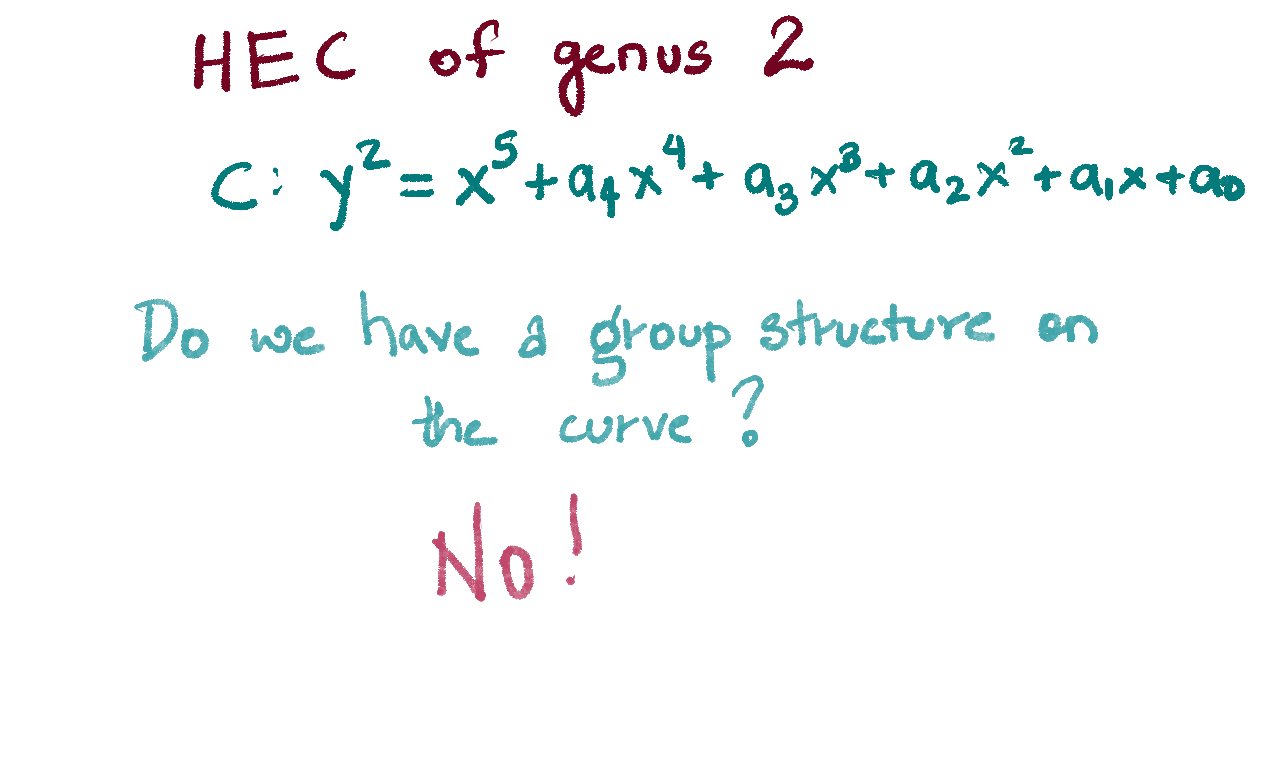 HEC of genus 2
C: y² = x⁵ + a₄x⁴ + a₃x³ + a₂x² + a₁x + a₀
Do we have a group structure on
the curve?
No!